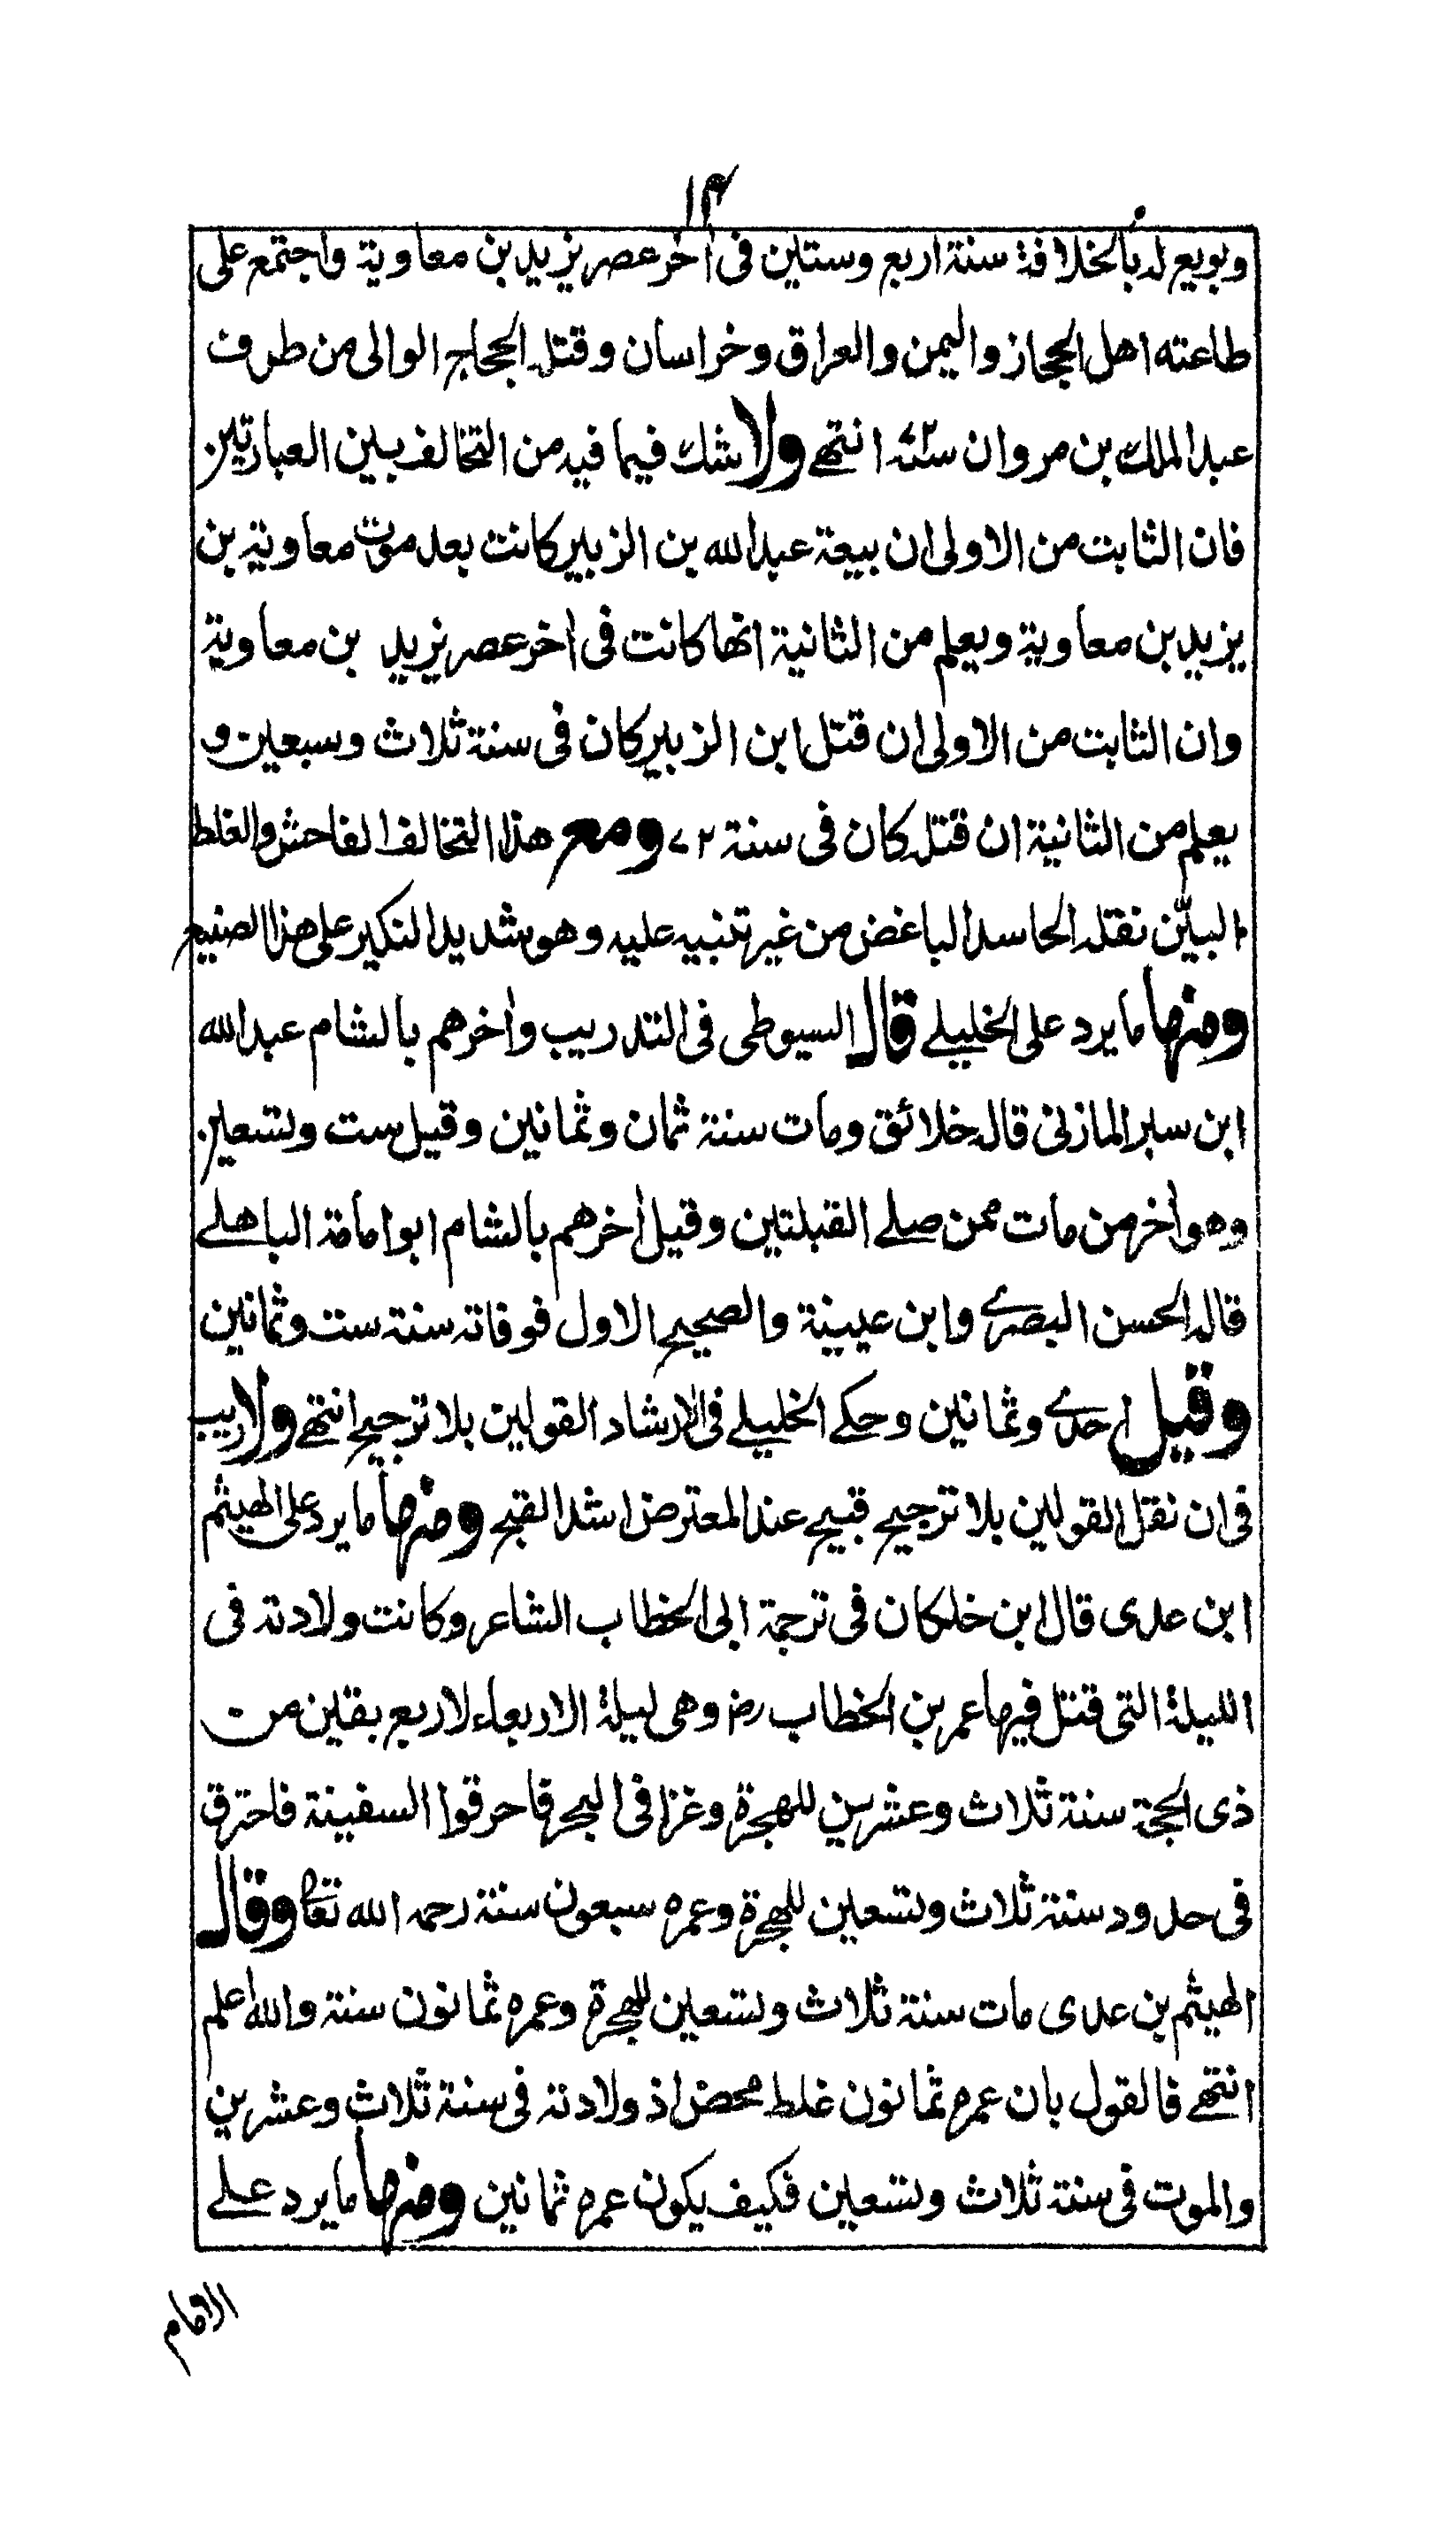 ١٤
وبويع له بالخلافة سنة اربع وستين فى اٰخر عصر يزيد بن معاوية واجتمع على
طاعته اهل الحجاز واليمن والعراق وخراسان وقتله الحجاج الوالى من طرف
عبد الملك بن مروان سنة ٧٢ انتهے ولا شك فيما فيه من التخالف بين العبارتين
فان الثابت من الاولى ان بيعة عبد الله بن الزبير كانت بعد موت معاوية بن
يزيد بن معاوية ويعلم من الثانية انها كانت فى اٰخر عصر يزيد بن معاوية
وان الثابت من الاولى ان قتل ابن الزبير كان فى سنة ثلاث وسبعين و
يعلم من الثانية ان قتله كان فى سنة ٧٢ ومع هذا التخالف الفاحش والغلط
البيّن نقله الحاسد الباغض من غير تنبيه عليه وهو شديد النكير على هذا الصنيع
ومنها ما يرد على الخليلے قال السيوطى فى التدريب واٰخرهم بالشام عبد الله
ابن سبر المازنى قاله خلائق ومات سنة ثمان وثمانين وقيل ست وتسعين
وهو اٰخر من مات ممن صلے القبلتين وقيل اٰخرهم بالشام ابو امامة الباهلے
قاله الحسن البصرے وابن عيينة والصحيح الاول فوفاته سنة ست وثمانين
وقيل احدے وثمانين وحكے الخليلے فى الارشاد القولين بلا ترجيح انتهے ولا ريب
فى ان نقل القولين بلا ترجيح قبيح عند المعترض اشد القبح ومنها ما يرد على الهيثم
ابن عدى قال ابن خلكان فى ترجمة ابى الخطاب الشاعر وكانت ولادته فى
الليلة التى قتل فيها عمر بن الخطاب رض وهى ليلة الاربعاء لاربع بقين من
ذى الحجة سنة ثلاث وعشرين للهجرة وغزا فى البحر فاحرقوا السفينة فاحترق
فى حدود سنة ثلاث وتسعين للهجرة وعمره سبعون سنة رحمه الله تعا وقال
الهيثم بن عدى مات سنة ثلاث وتسعين للهجرة وعمره ثمانون سنة والله اعلم
انتهے فالقول بان عمره ثمانون غلط محض اذ ولادته فى سنة ثلاث وعشرين
والموت فى سنة ثلاث وتسعين فكيف يكون عمره ثمانين ومنها ما يرد علے
الامام